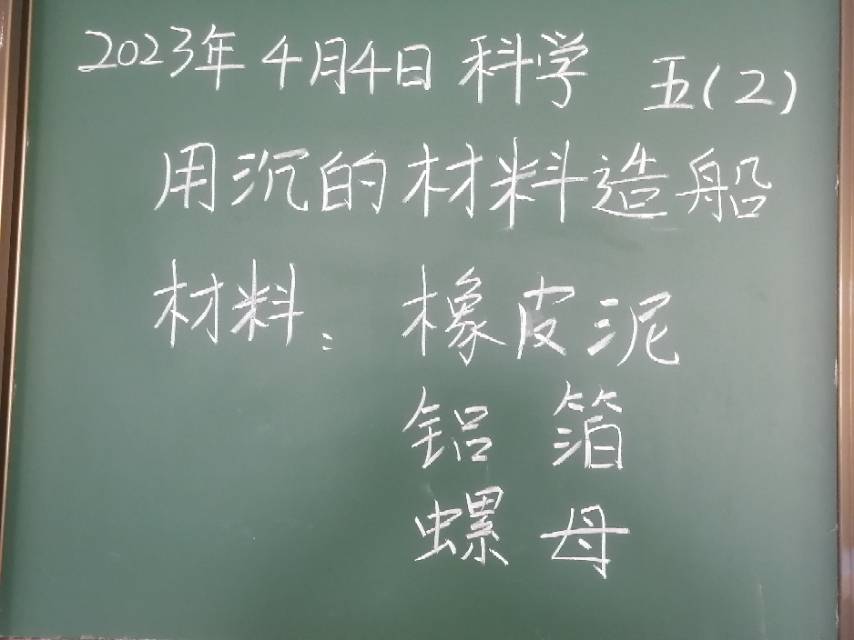 2023年4月4日 科学 五(2)
用沉的材料造船
材料：橡皮泥
铝箔
螺母